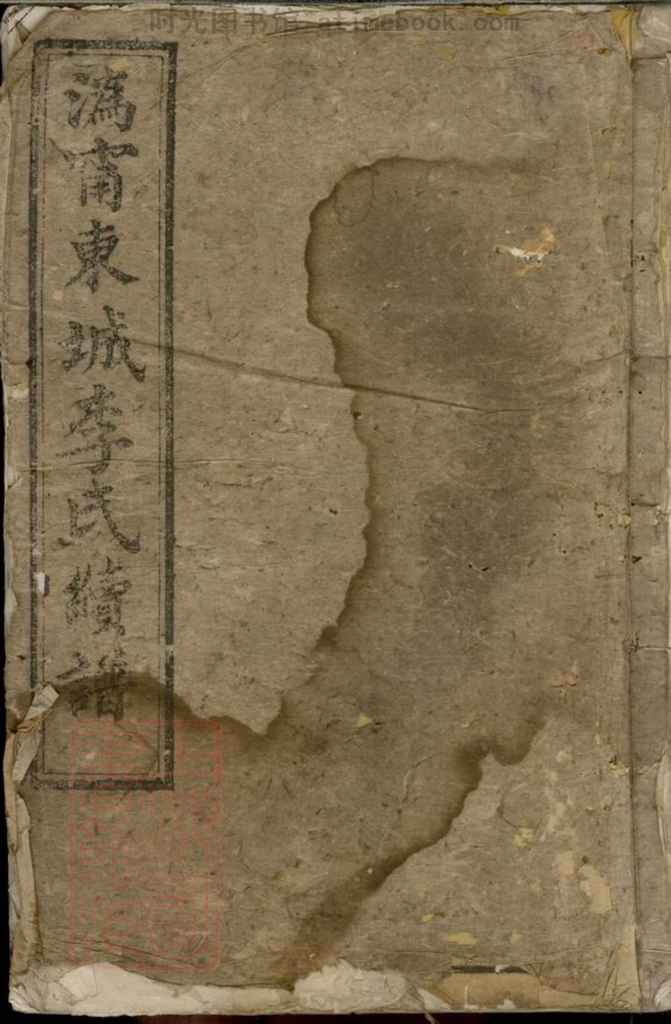 时光图书馆 atimebook.com
溈甯東城李氏續譜